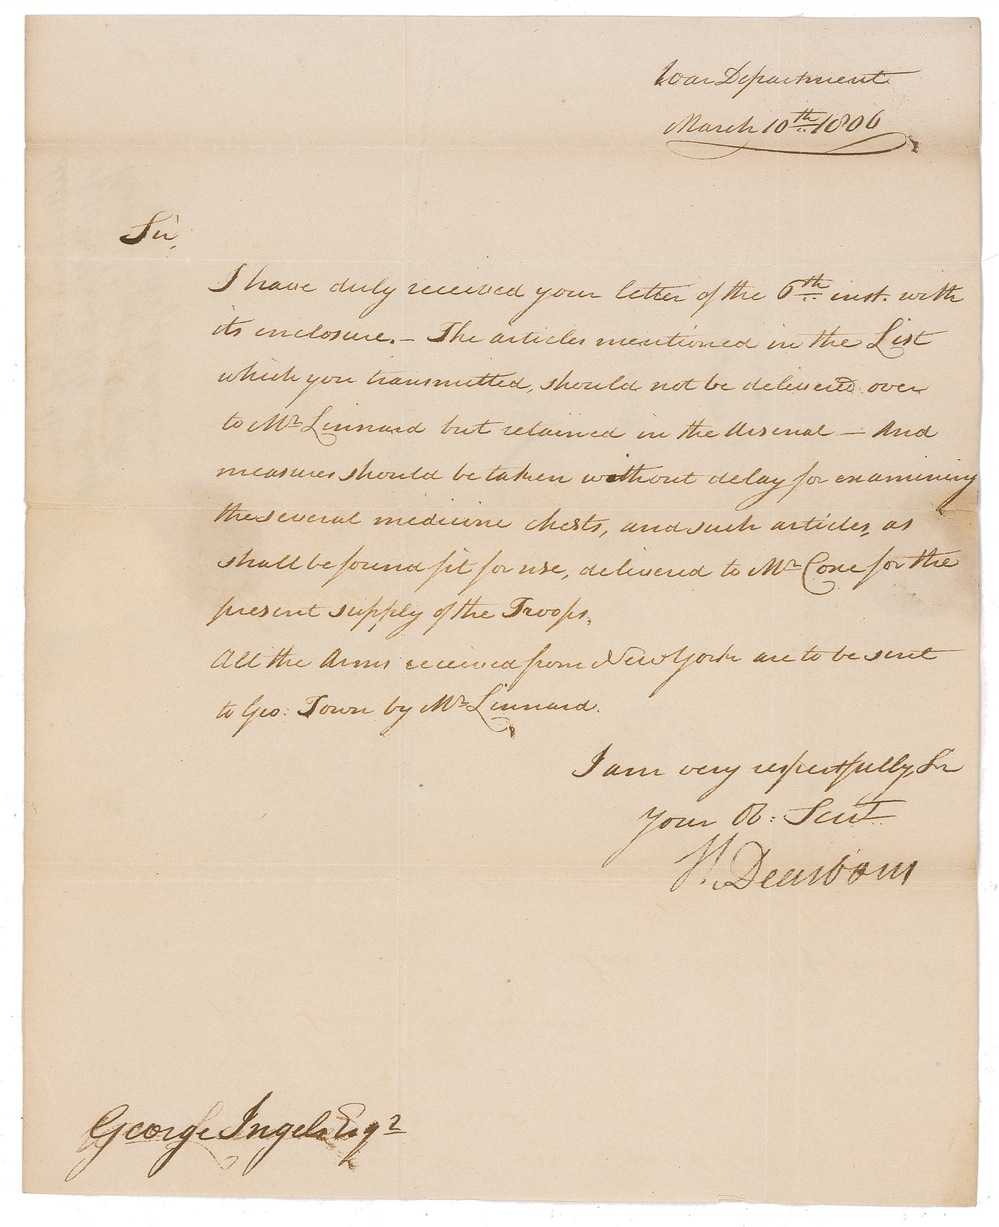 War Department
March 10th 1806
Sir,
I have duly received your letter of the 6th inst. with
its enclosure. – The articles mentioned in the List
which you transmitted, should not be delivered over
to Mr Linnard but retained in the Arsenal – And
measures should be taken without delay for examining
the several medicine chests, and such articles, as
shall be found fit for use, delivered to Mr Coxe for the
present supply of the Troops.
All the Arms received from New York are to be sent
to Geo: Town by Mr Linnard.
I am very respectfully Sir
Your Ob: Servt
H. Dearborn
George Ingels Esqr